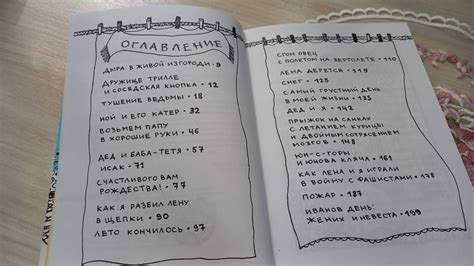 ОГЛАВЛЕНИЕ
ДЫРА В ЖИВОЙ ИЗГОРОДИ • 9
ДРУЖИЩЕ ТРИЛЛЕ
И СОСЕДСКАЯ КНОПКА • 12
ТУШЕНИЕ ВЕДЬМЫ • 18
НОЙ И ЕГО КАТЕР • 32
ВОЗЬМЕМ ПАПУ
В ХОРОШИЕ РУКИ • 46
ДЕД И БАБА-ТЕТЯ • 57
ИСАК • 71
СЧАСТЛИВОГО ВАМ
РОЖДЕСТВА! • 77
КАК Я РАЗБИЛ ЛЕНУ
В ЩЕПКИ • 90
ЛЕТО КОНЧИЛОСЬ • 97
СГОН ОВЕЦ
С ПОЛЕТОМ НА ВЕРТОЛЕТЕ • 110
ЛЕНА ДЕРЕТСЯ • 119
СНЕГ • 125
САМЫЙ ГРУСТНЫЙ ДЕНЬ
В МОЕЙ ЖИЗНИ • 135
ДЕД И Я • 142
ПРЫЖОК НА САНКАХ
С ЛЕТАНИЕМ КУРИЦЫ
И ДВОЙНЫМ СОТРЯСЕНИЕМ
МОЗГОВ • 148
ЮН-С-ГОРЫ
И ЮНОВА КЛЯЧА • 161
КАК ЛЕНА И Я ИГРАЛИ
В ВОЙНУ С ФАШИСТАМИ • 178
ПОЖАР • 187
ИВАНОВ ДЕНЬ:
ЖЕНИХ И НЕВЕСТА • 199